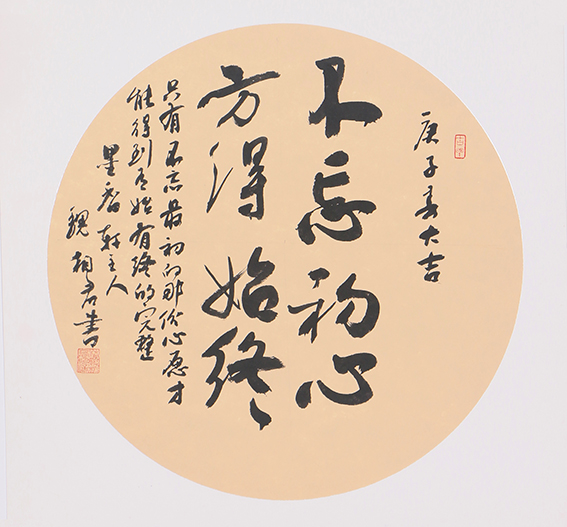 庚子春大吉
不忘初心
方得始终
只有不忘最初的那份心愿才
能得到有始有终的完整
墨香轩主人
魏相君书